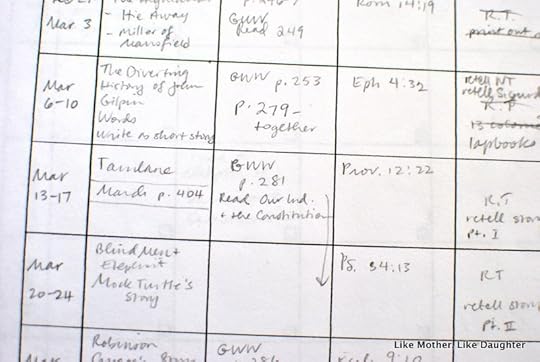 Rom 14:19
Mar 3
- Hie Away
- Miller of
Mansfield
GWW
Read 249
R.T.
print out
Mar
6-10
The Diverting
History of John
Gilpin
Words
Write as short story
GWW p. 253
p. 279-
together
Eph 4:32
retell NT
retell Sigurd
R.T.
13 colonies
lapbooks
Mar
13-17
Tamlane
March p. 404
GWW
p. 281
Read Our Ind.
+ the Constitution
Prov. 12:22
R.T
retell story
Pt. I
Mar
20-24
Blind Men +
Elephant
Mock Turtle's
Story
Ps. 34:13
RT
retell story
Pt. II
Robinson
GWW
286
9:10
Like Mother, Like Daughter